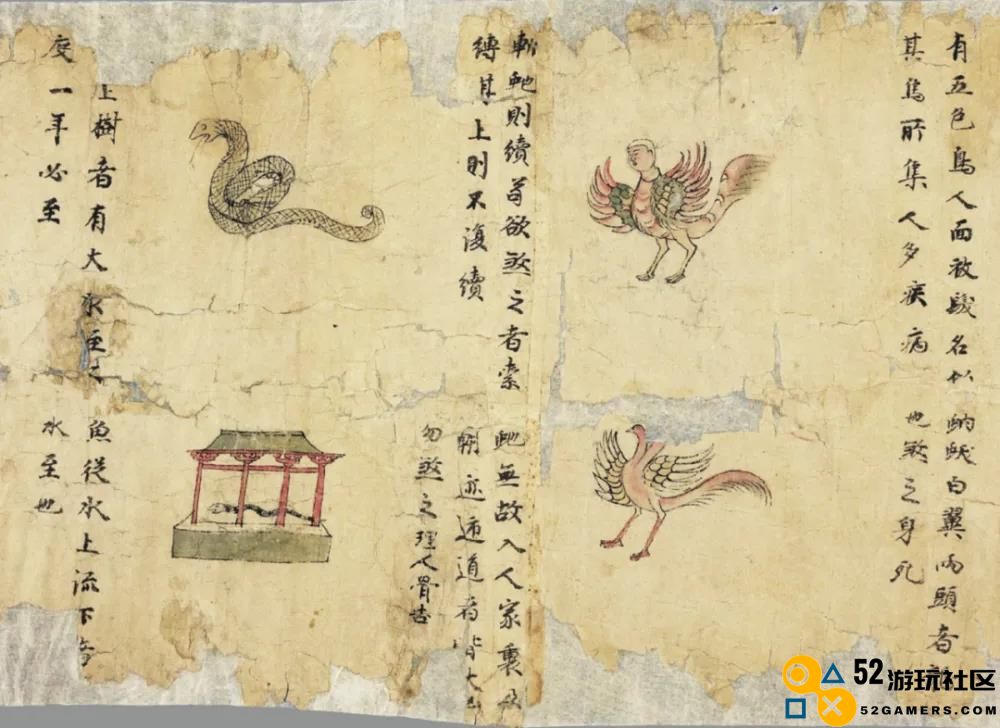 有五色鳥人面被髮名似
其鳥所集人多疾病
蚋蛇白翼两頭者
也煞之身死
斬虵則續苟欲煞之者索
縛其上則不復續
虵無故入人家裏及
朝迹通道者皆大
勿煞之理人骨吉
上樹者有大水至之
度一年必至
魚從水上流下者
水至也
52游玩社区
52GAMERS.COM